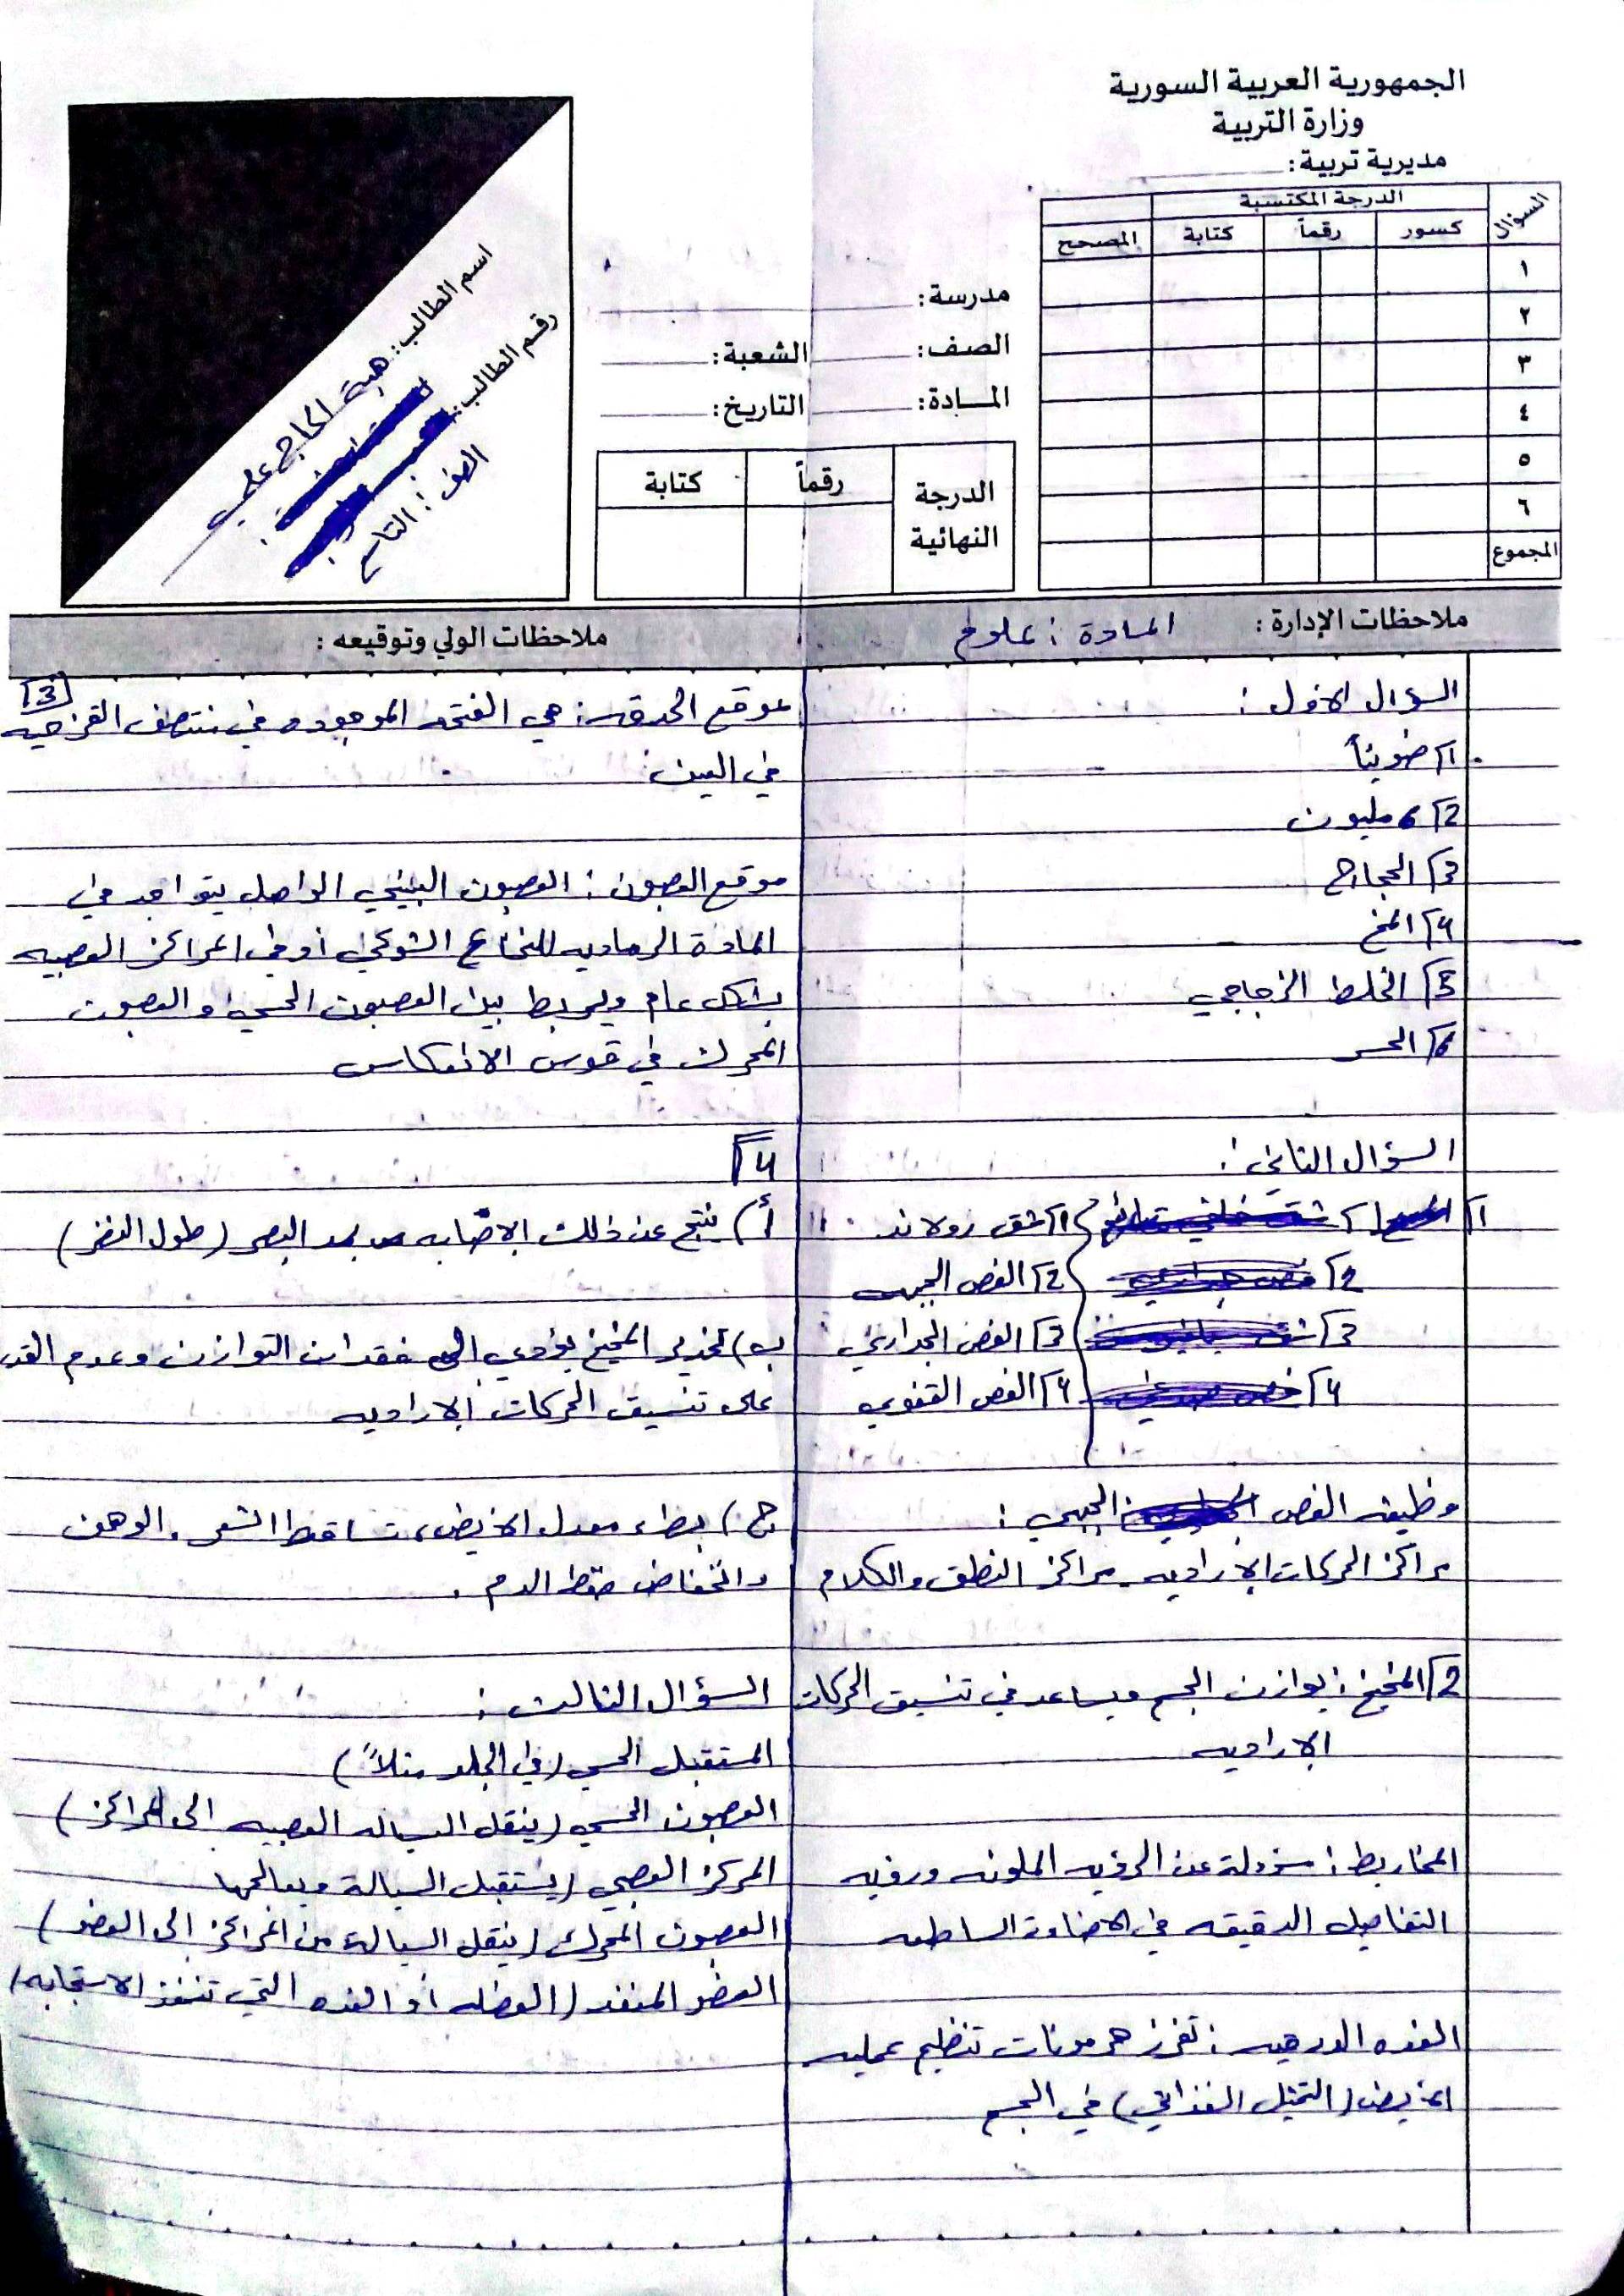 الجمهورية العربية السورية
وزارة التربية
مديرية تربية:
السؤال
الدرجة المكتسبة
كسور
رقماً
كتابة
المصحح
١
٢
٣
٤
٥
٦
المجموع
مدرسة:
الصف:
الشعبة:
المادة:
التاريخ:
الدرجة النهائية
رقماً
كتابة
اسم الطالب: هبة الحاج علي
رقم الطالب:
الصف: التاسع
ملاحظات الإدارة: المادة: علوم
ملاحظات الولي وتوقيعه:
السؤال الاول:
1) ضوئياً
2) 6 مليون
3) الحجاج
4) المخ
5) الخلط الزجاجي
6) الحس
السؤال الثاني:
1) 1) شق رولاند
2) الفص الجبهي
3) الفص الجداري
4) الفص القفوي
وظيفه الفص الجبهي:
مراكز الحركات الاراديه مراكز النطق والكلام
2) المخيخ: توازن الجسم ويساعد في تنسيق الحركات
الاراديه
المخاريط: مسؤولة عن الرؤيه الملونه ورؤيه
التفاصيل الدقيقه في الاضاءة الساطعه
الغده الدرقيه: تفرز هرمونات تنظيم عمليه
الايض (التمثيل الغذائي) في الجسم
3)
موقع الحدقه: هي الفتحه الموجوده في منتصف القزحيه
في العين
موقع العصبون: العصبون البيني الواصل يتواجد في
المادة الرماديه للنخاع الشوكي أو في المراكز العصبيه
بشكل عام ويربط بين العصبون الحسي والعصبون
المحرك في قوس الانعكاس
4)
أ) نتج عن ذلك الاصابه بمد البصر (طول النظر)
ب) تخدير المخيخ يؤدي الى فقدان التوازن وعدم القد
على تنسيق الحركات الاراديه
ج) بطء معدل الايض، تساقط الشعر والوهن
وانخفاض ضغط الدم.
السؤال الثالث:
المستقبل الحسي (في الجلد مثلاً)
العصبون الحسي (ينقل السياله العصبيه الى المراكز)
المركز العصبي (يستقبل السيالة ويعالجها
العصبون المحرك (ينقل السيالة من المراكز الى العضو)
العضو المنفذ (العضله أو الغده التي تنفذ الاستجابه)